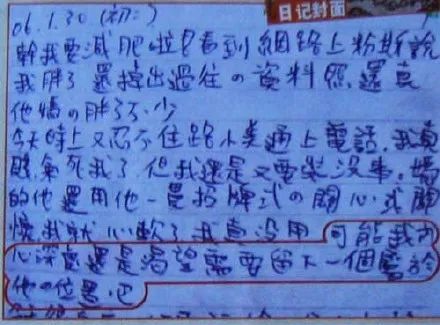 日记封面
06.1.30 (初二)
幹我要減肥啦!竟看到網路上粉斯說
我胖了還撐出過往の資料照還真
他媽の胖了不少
今天晚上又忍不住跟小美通上電話.我真
氣死我了但我還是又電裝沒事.媽
的他還用他一貫招牌式の關心或關
懷我就心軟了我真沒用 可能我內
心深處還是渴望需要留下一個屬於
他の位置吧